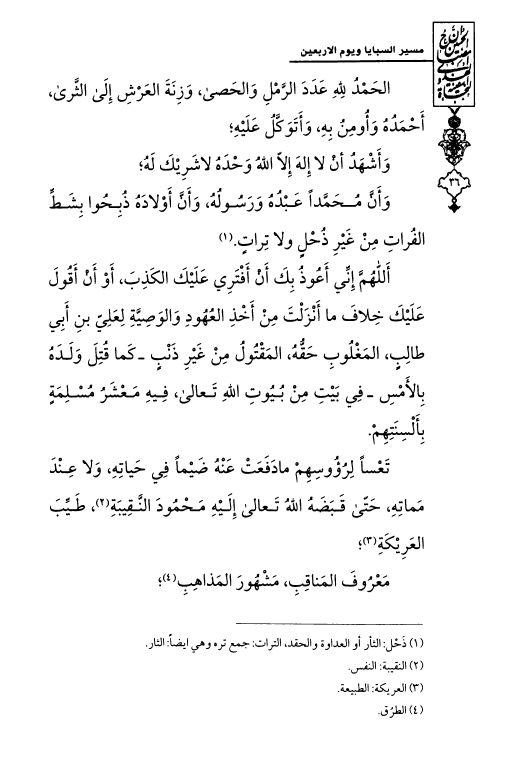 مسير السبايا ويوم الاربعين
٣٦
الحَمْدُ لِلهِ عَدَدَ الرَّمْلِ وَالحَصىٰ، وَزِنَةَ العَرْشِ إِلَىٰ الثَّرىٰ،
أَحْمَدُهُ وَأُومِنُ بِهِ، وَأَتَوَكَّلُ عَلَيْهِ؛
وَأَشْهَدُ أنْ لا إله إلاّ اللهُ وَحْدَهُ لاشَرِيْكَ لَهُ؛
وَأَنَّ مُحَمَّداً عَبْدُهُ وَرَسُولُهُ، وَأَنَّ أَوْلادَهُ ذُبِحُوا بِشَطِّ
الفُراتِ مِنْ غَيْرِ ذُحْلٍ ولا تِراتٍ.(١)
أَللّٰهُمَّ إِنِّي أَعُوذُ بِكَ أَنْ أَفْتَرِي عَلَيْكَ الكَذِبَ، أَوْ أَنْ أَقُولَ
عَلَيْكَ خِلافَ ما أَنْزَلْتَ مِنْ أَخْذِ العُهُودِ وَالوَصِيَّةِ لِعَلِيّ بنِ أَبي
طالِبٍ، المَغْلُوبِ حَقُّهُ، المَقْتُولُ مِنْ غَيْرِ ذَنْبٍ ـ كَما قُتِلَ وَلَدُهُ
بِالأَمْسِ ـ في بَيْتٍ مِنْ بُيُوتِ اللهِ تَعالىٰ، فيهِ مَعْشَرُ مُسْلِمَةٍ
بِأَلْسِنَتِهِمْ.
تَعْساً لِرُؤُوسِهِمْ مادَفَعَتْ عَنْهُ ضَيْماً في حَياتِهِ، وَلا عِنْدَ
مَماتِهِ، حَتّىٰ قَبَضَهُ اللهُ تَعالىٰ إِلَيْهِ مَحْمُودَ النَّقِيبَةِ(٢)، طَيِّبَ
العَرِيْكَةِ(٣)؛
مَعْرُوفَ المَناقِبِ، مَشْهُورَ المَذاهِبِ(٤)؛
(١) ذَحْل: الثأر أو العداوة والحقد، الترات: جمع تره وهي ايضاً: الثار.
(٢) النقيبة: النفس.
(٣) العريكة: الطبيعة.
(٤) الطرُق.